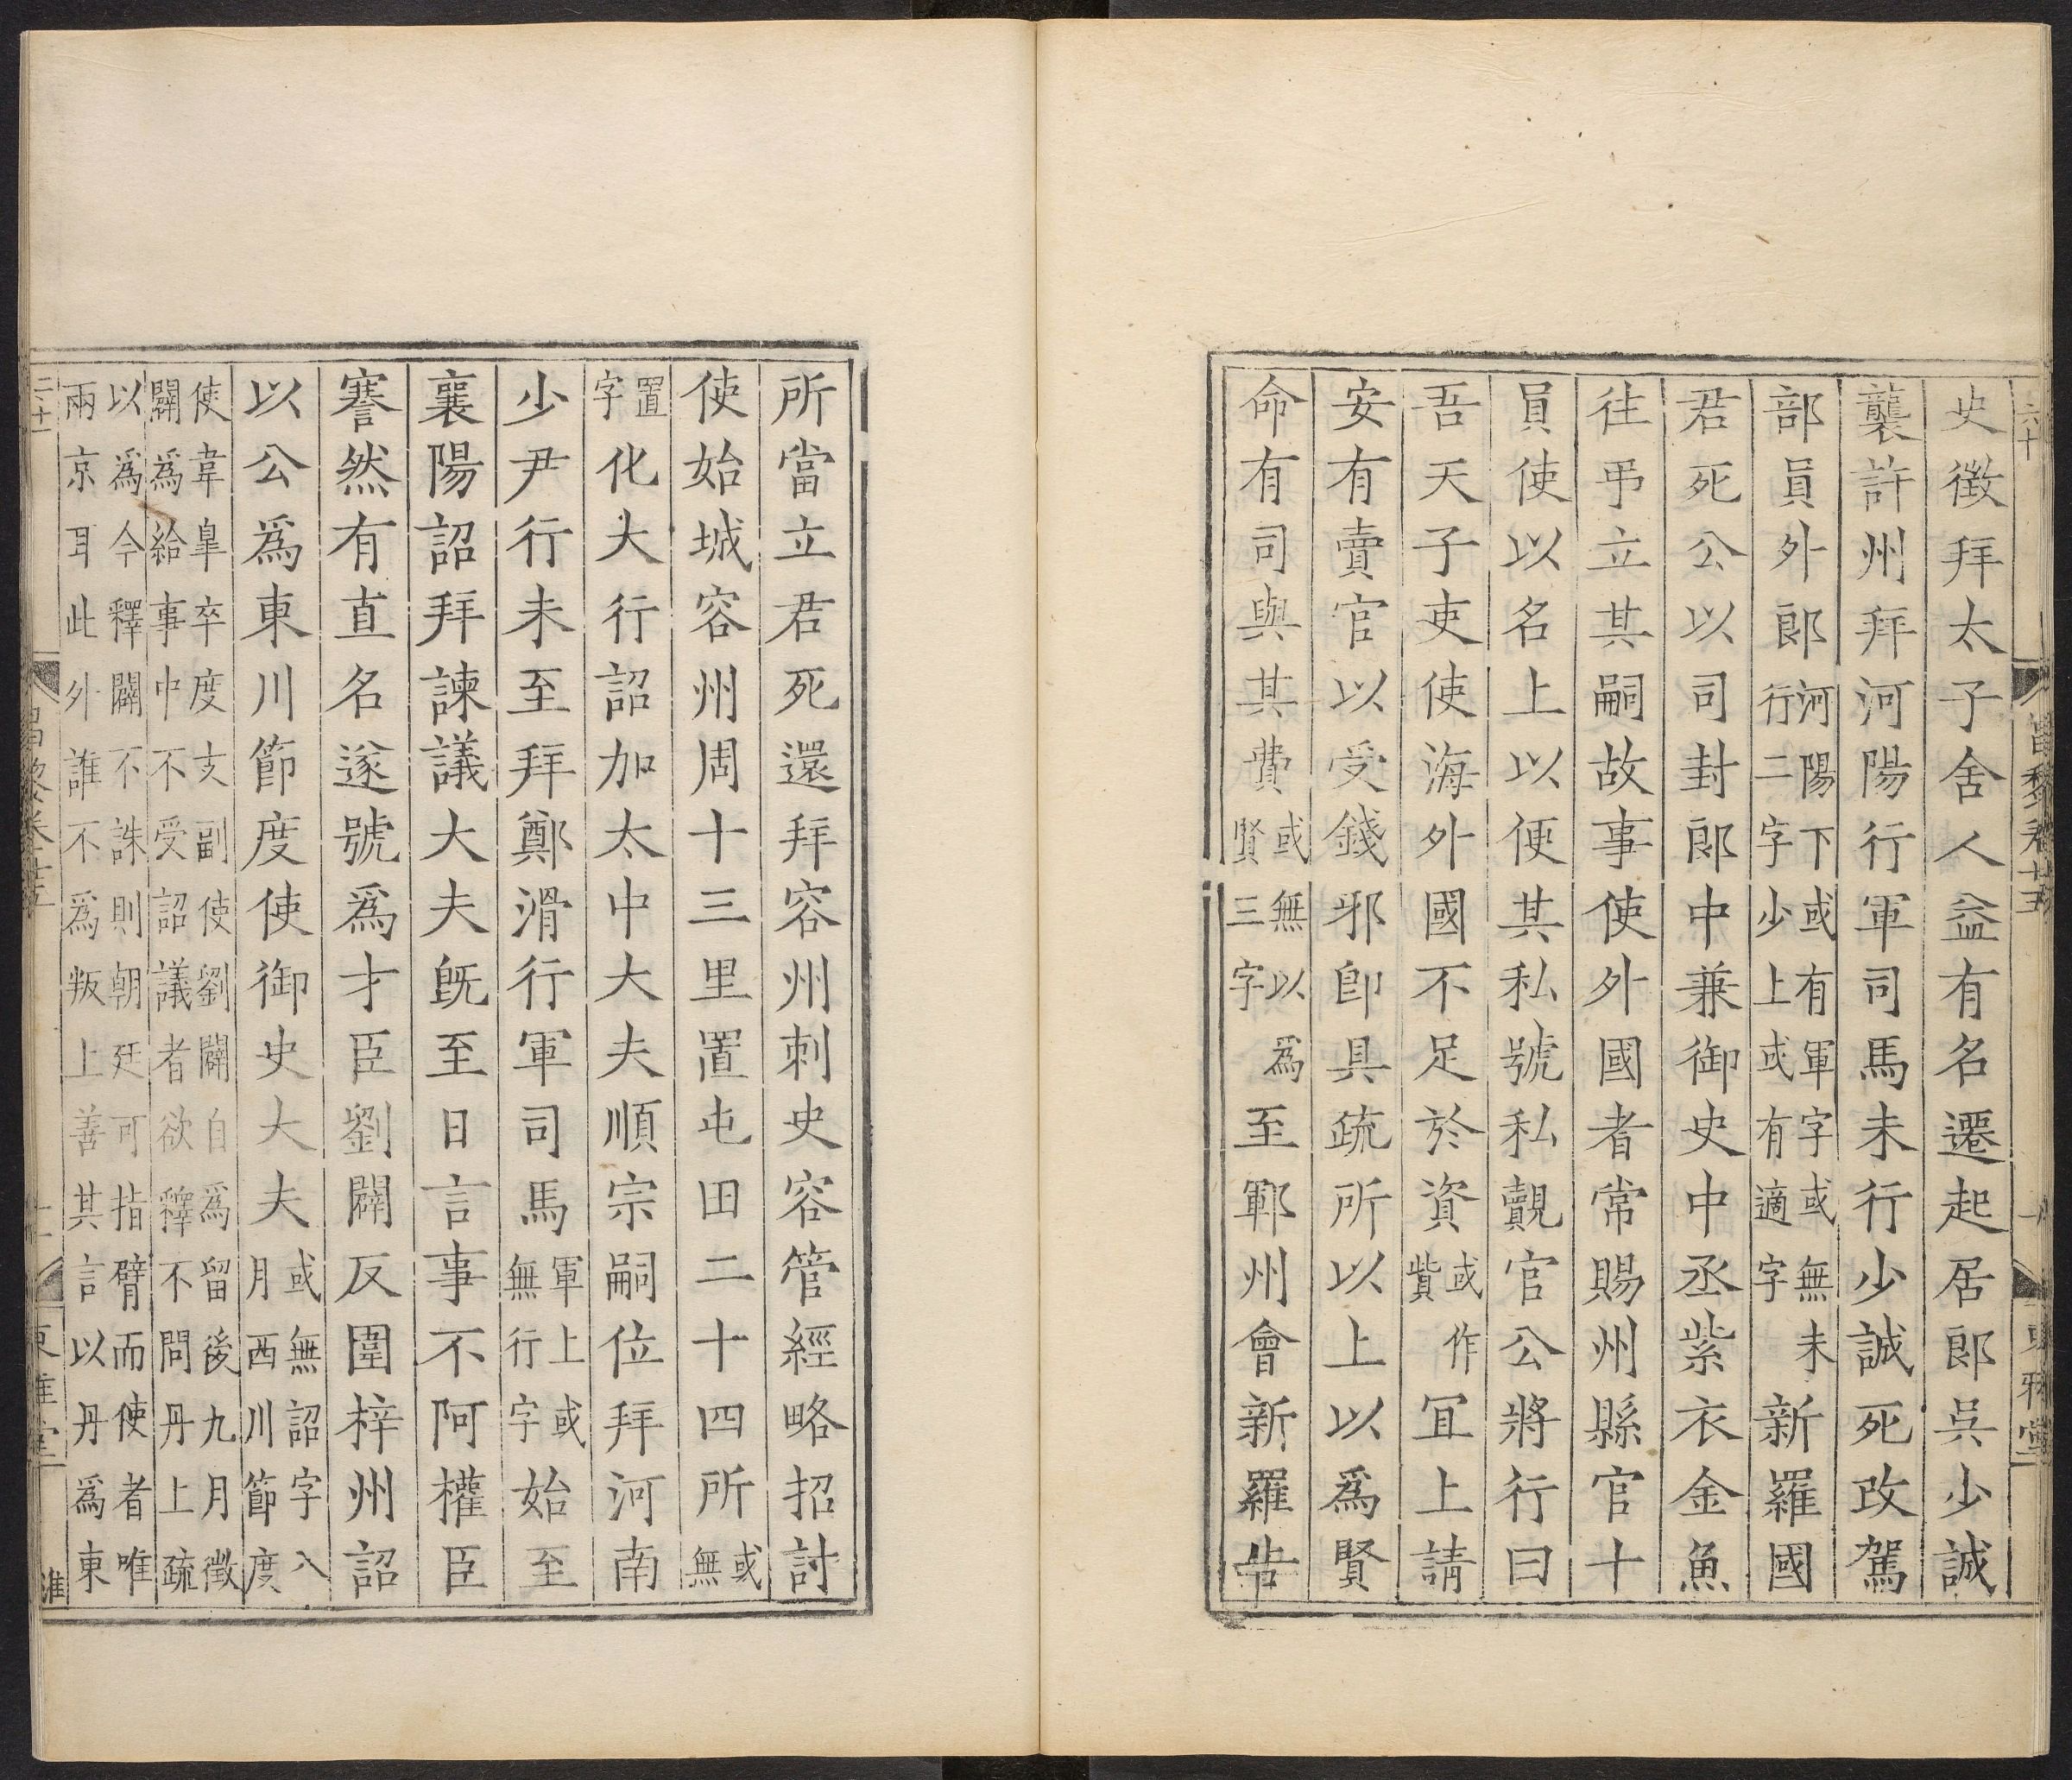 史徵拜太子舍人益有名遷起居郎吳少誠
襲許州拜河陽行軍司馬未行少誠死改駕
部員外郎河陽下或有軍字或無未行二字少上或有適字新羅國
君死公以司封郎中兼御史中丞紫衣金魚
往弔立其嗣故事使外國者常賜州縣官十
員使以名上以便其私號私覿官公將行曰
吾天子吏使海外國不足於資或作貲宜上請
安有賣官以受錢邪卽具疏所以上以爲賢
命有司與其費或無以爲賢三字至鄆州會新羅告
所當立君死還拜容州刺史容管經略招討
使始城容州周十三里置屯田二十四所或無
置字化大行詔加太中大夫順宗嗣位拜河南
少尹行未至拜鄭滑行軍司馬軍上或無行字始至
襄陽詔拜諫議大夫旣至日言事不阿權臣
謇然有直名遂號爲才臣劉闢反圍梓州詔
以公爲東川節度使御史大夫或無詔字八月西川節度
使韋臯卒度支副使劉闢自爲留後九月徵
闢爲給事中不受詔議者欲釋不問丹上疏
以爲今釋闢不誅則朝廷可指臂而使者唯
兩京耳此外誰不爲叛上善其言以丹爲東